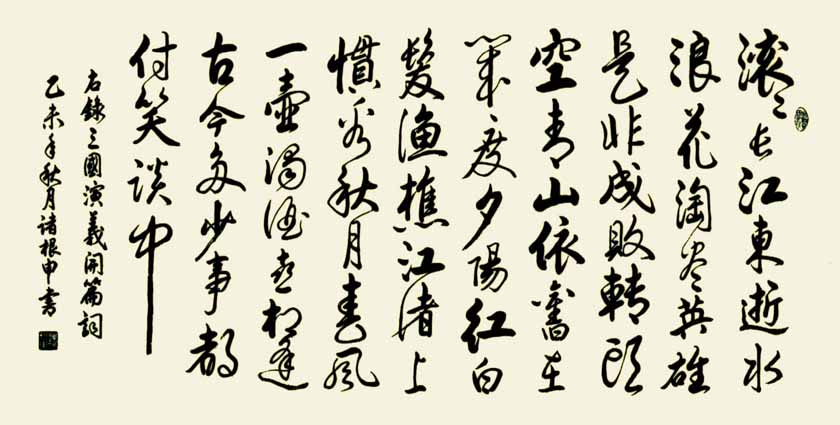 滚〻长江東逝水
浪花淘尽英雄
是非成敗轉头
空青山依舊在
几度夕陽红白
髮漁樵江渚上
惯看秋月春风
一壶濁酒喜相逢
古今多少事都
付笑談中
右録三國演義開篇詞
乙未年秋月诸根申書